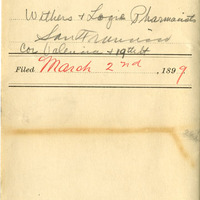 Withers & Logie Pharmacists
San Francisco
Cor Valencia & 19th St
Filed March 2nd, 1899